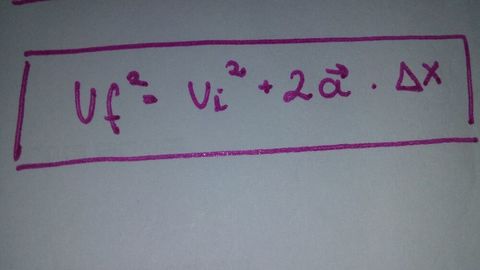 Vf² = Vi² + 2a⃗ · Δx